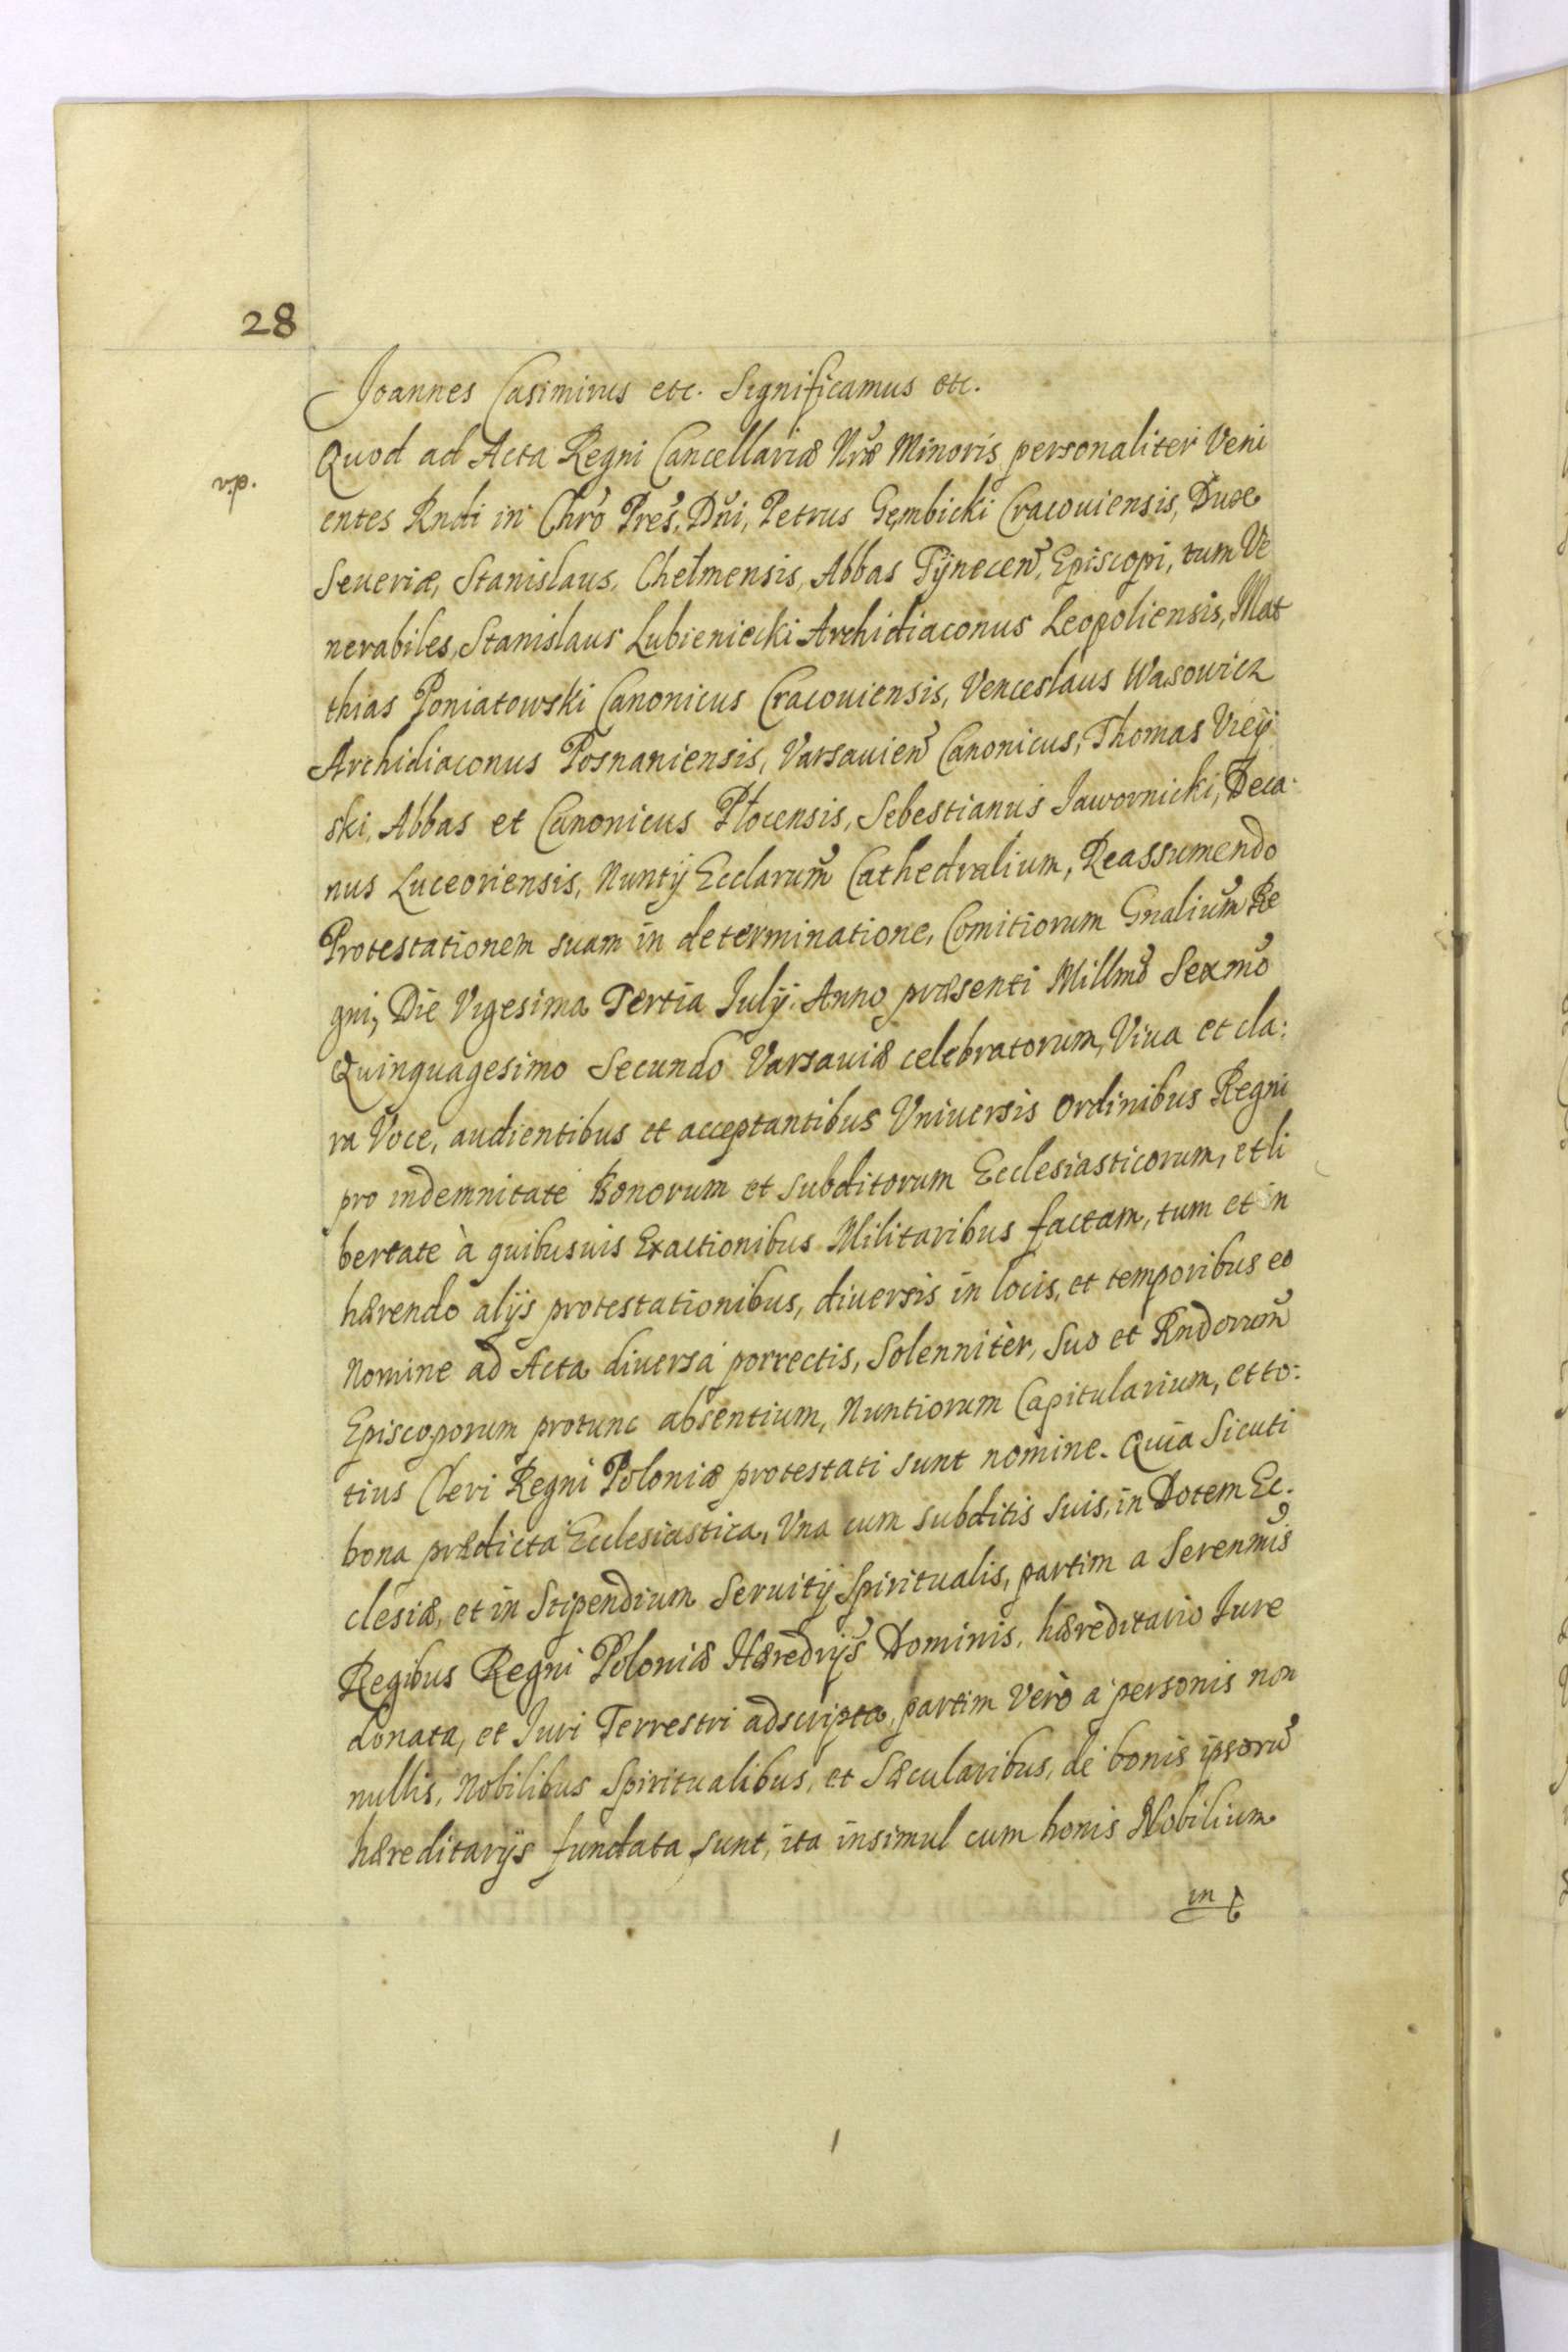 28
Joannes Casimirus etc. Significamus etc.
Quod ad Acta Regni Cancellariæ Nræ Minoris personaliter Veni
entes Rndi in Chrō Prēs, Dni, Petrus Gembicki Cracouiensis, Duxe
Seueriæ, Stanislaus, Chelmensis, Abbas Tÿnecen̄, Episcopi, tum Ve
nerabiles, Stanislaus Lubieniecki Archidiaconus Leopoliensis, Mat
thias Poniatowski Canonicus Cracouiensis, Venceslaus Wasowicz
Archidiaconus Posnaniensis, Varsauien̄ Canonicus, Thomas Vieÿ
ski, Abbas et Canonicus Płocensis, Sebestianus Jawornicki, Deca:
nus Luceoriensis, Nuntÿ Ecclarum̄ Cathedralium, Reassumendo
Protestationem suam in determinatione, Comitiorum Gnalium̄ Re
gni, Die Vigesima Tertia Julÿ. Anno præsenti Millmō Sexmō
Quinquagesimo Secundo Varsauiæ celebratorum, Viua et cla:
ra Voce, audientibus et acceptantibus Vniuersis Ordinibus Regni
pro indemnitate Bonorum et subditorum Ecclesiasticorum, et li
bertate à quibusuis Exactionibus Militaribus factam, tum et in
hærendo alÿs protestationibus, diuersis in locis, et temporibus eo
Nomine ad Acta diuersa porrectis, Solennitèr, Suo et Rndorum̄
Episcoporum protunc absentium, Nuntiorum Capitularium, et to:
tius Cleri Regni Poloniæ protestati sunt nomine. Quia Sicuti
bona prædicta Ecclesiastica, Vna cum subditis suis, in Dotem Ec.
clesiæ, et in Stipendium Seruitÿ Spiritualis, partim a Serenm̄is
Regibus Regni Poloniæ Hæredrÿs̄ Dominis, hæreditario Iure
donata, et Juri Terrestri adscripta, partim Verò a personis non
nullis, Nobilibus Spiritualibus, et Sæcularibus, de bonis ipsorū
hæreditarÿs fundata sunt, ita insimul cum bonis Nobilium
in